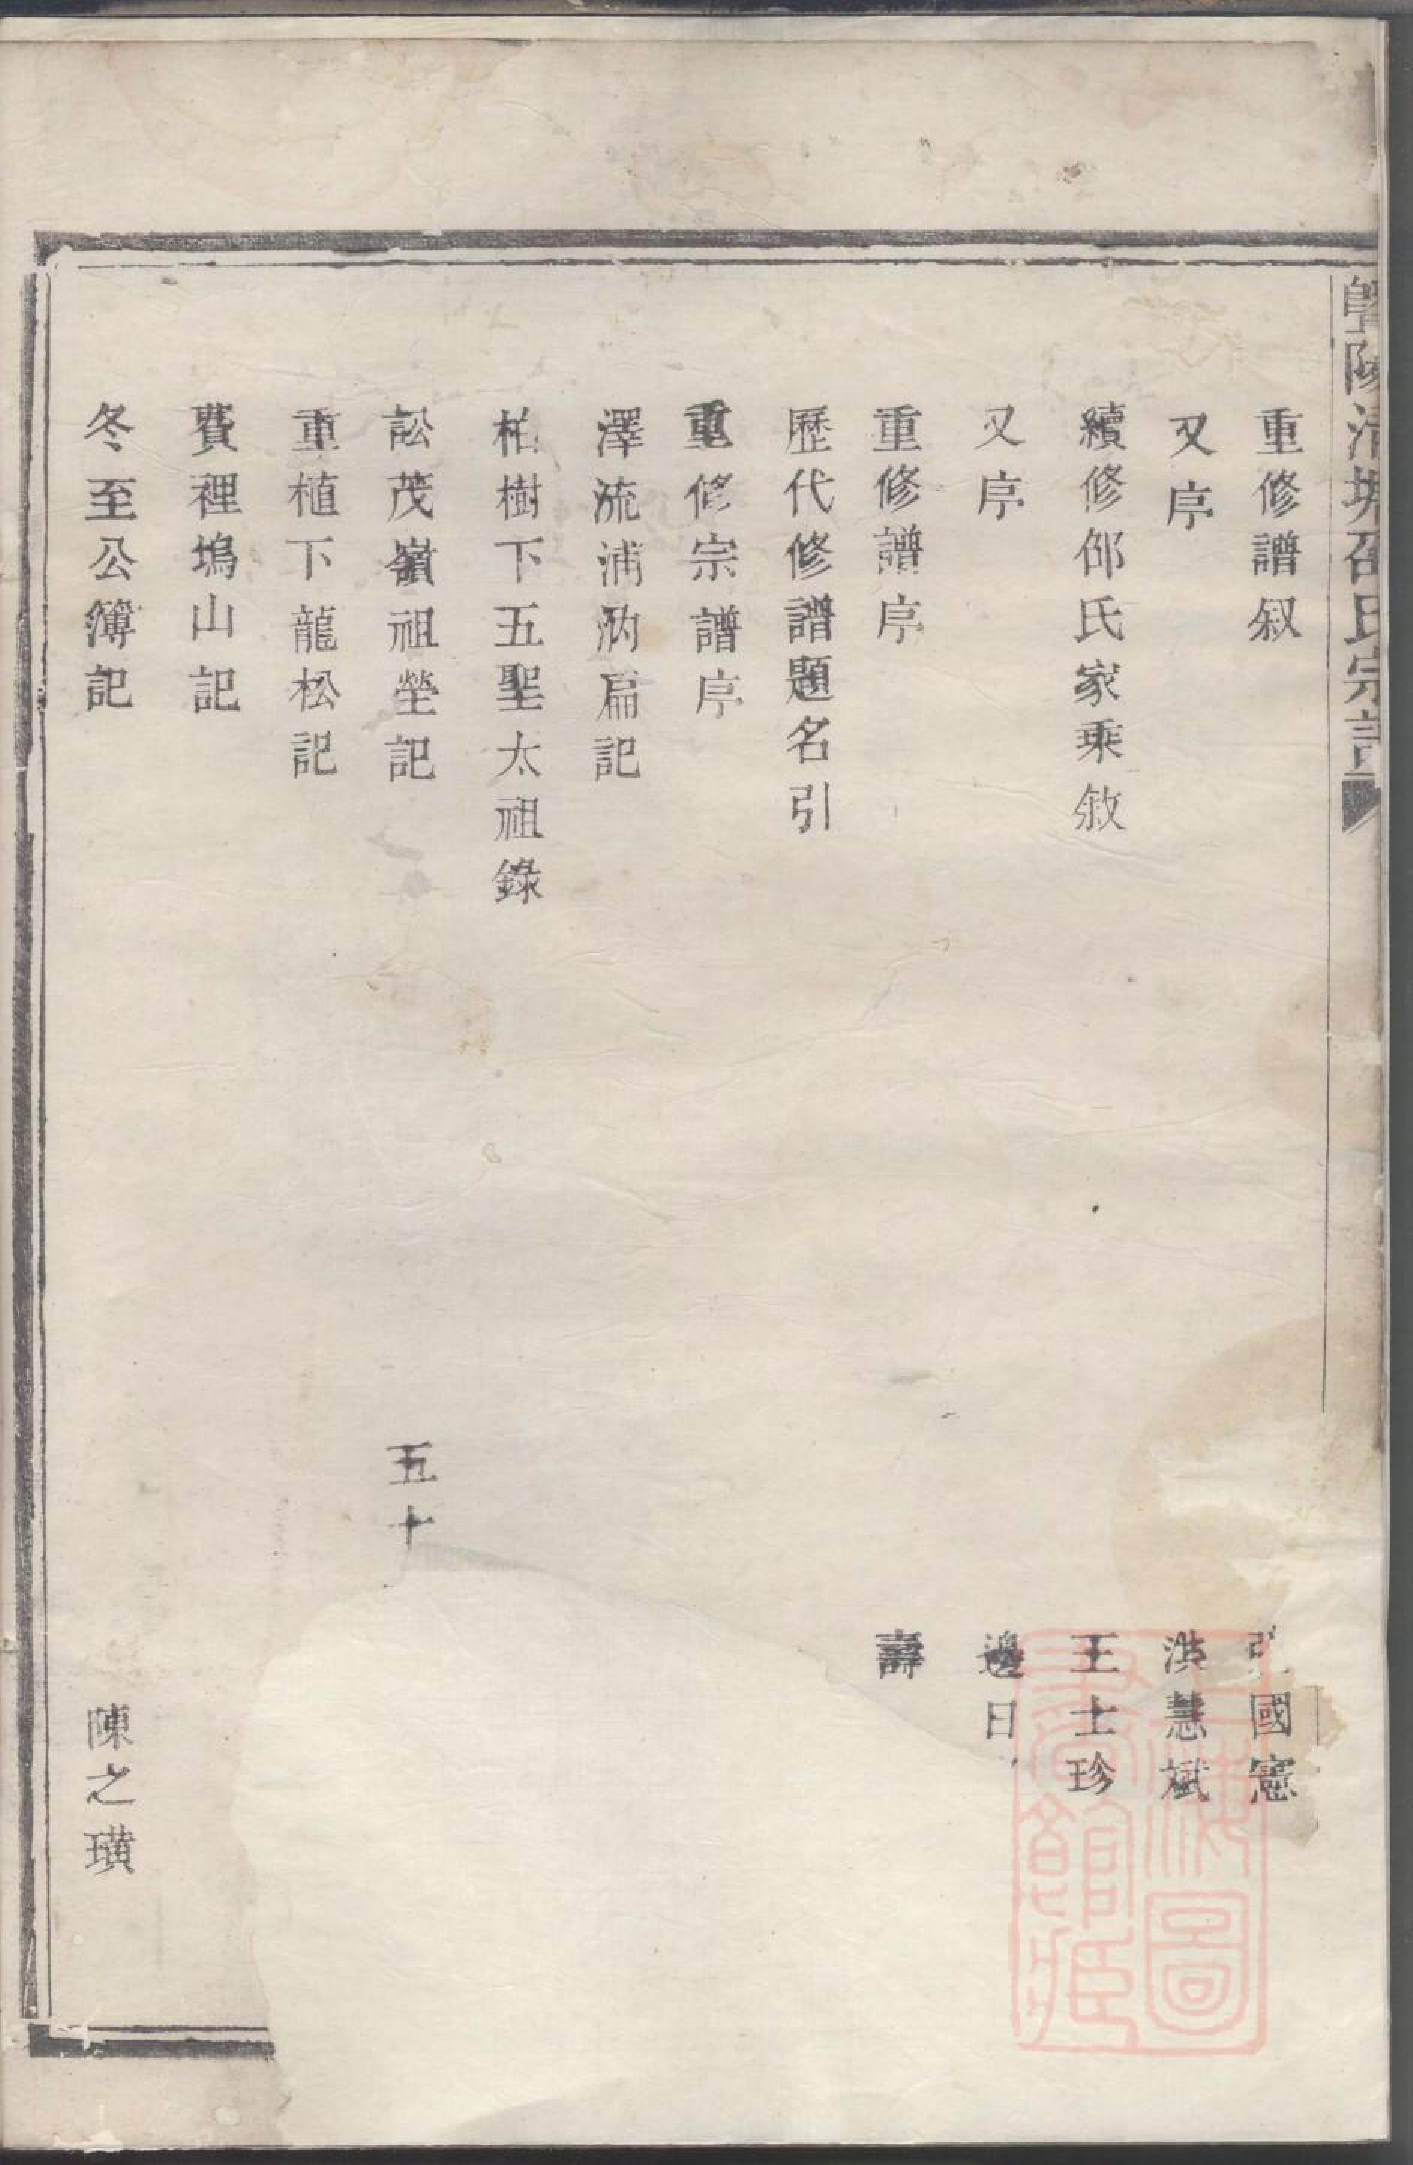 陵清塘邵氏宗譜
重修譜叙 國憲
又序 洪慧斌
續修邵氏家乘敘 王士珍
又序 邊日
重修譜序 壽
歷代修譜題名引
重修宗譜序
澤流浦汭扁記
柏樹下五聖太祖錄
訟茂嶺祖塋記 五十
重植下龍松記
費裡塢山記
冬至公簿記 陳之璜
上海圖書館藏